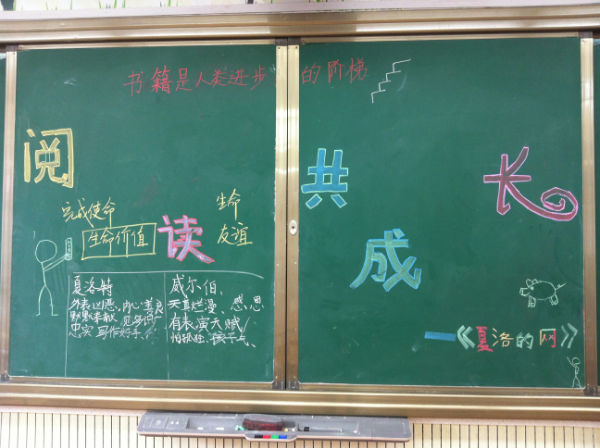 书籍是人类进步的阶梯
阅读
共成长
完成使命
生命价值
生命
友谊
夏洛特
外表凶恶、内心善良
默默奉献、见多识广
忠实、写作好手
威尔伯、
天真烂漫、感恩
有表演天赋
怕孤独、孩子气、
——《夏洛的网》